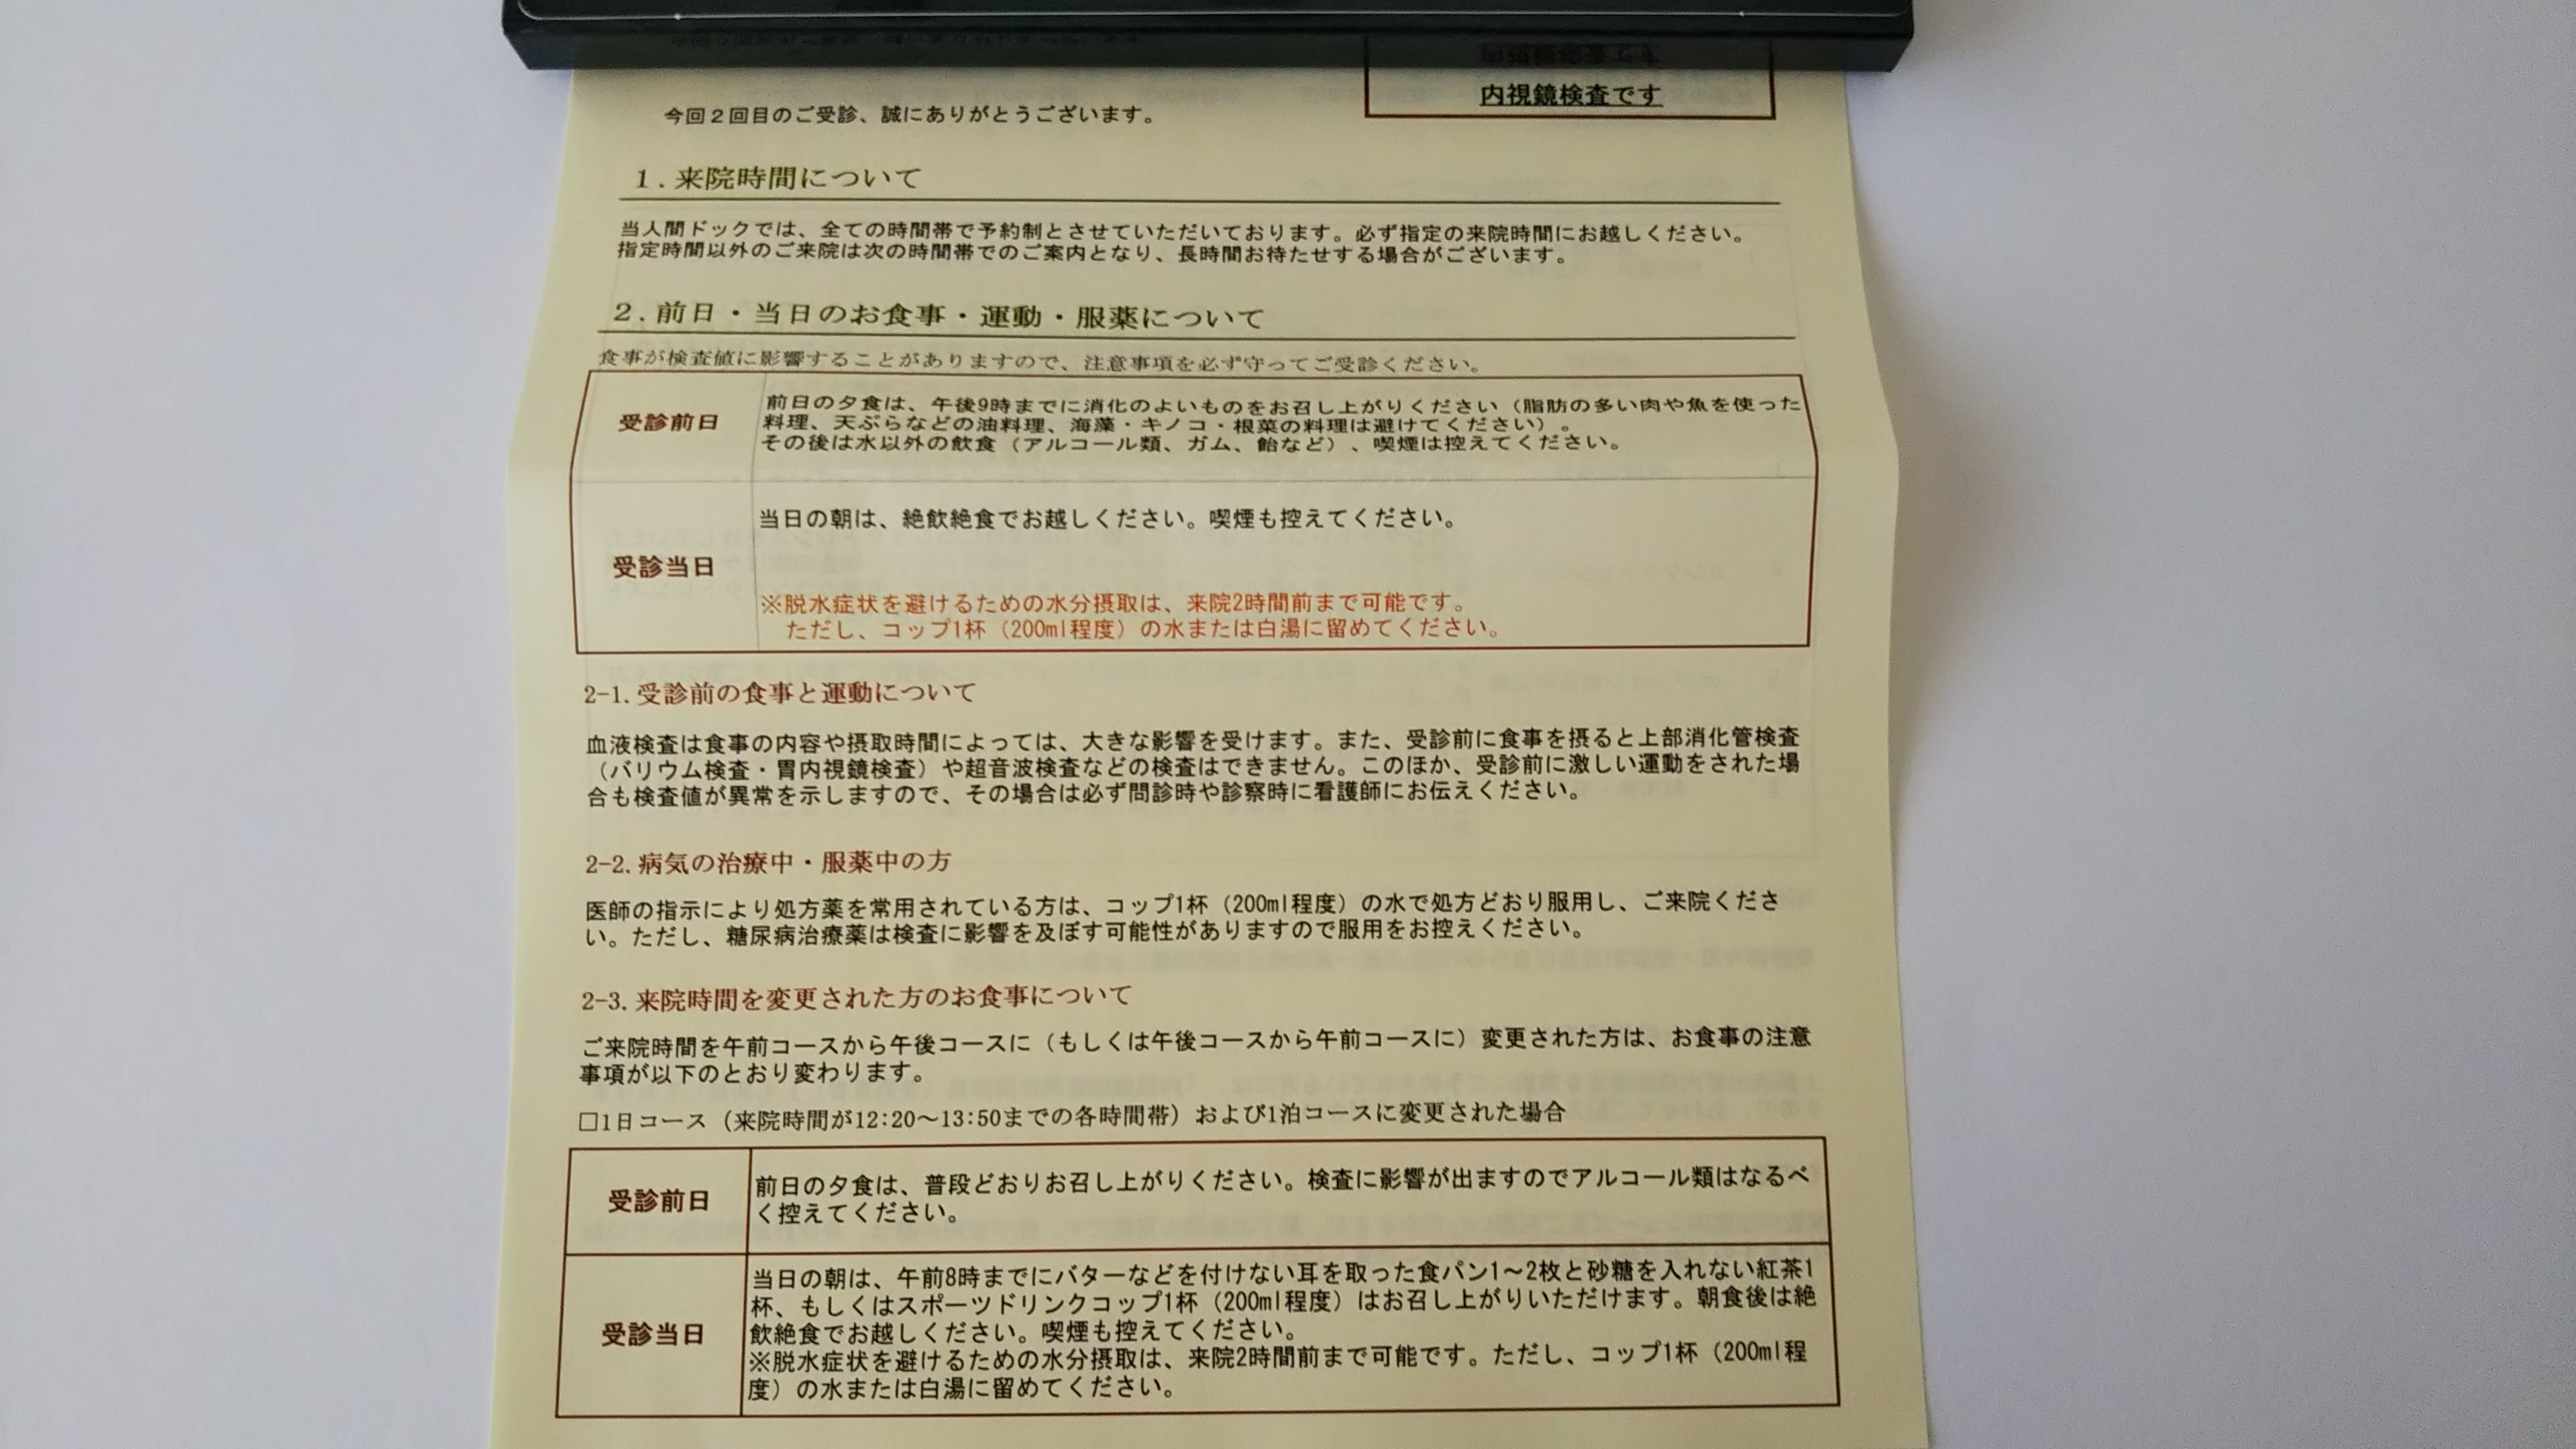 内視鏡検査です
今回2回目のご受診、誠にありがとうございます。
1.来院時間について
当人間ドックでは、全ての時間帯で予約制とさせていただいております。必ず指定の来院時間にお越しください。
指定時間以外のご来院は次の時間帯でのご案内となり、長時間お待たせする場合がございます。
2.前日・当日のお食事・運動・服薬について
食事が検査値に影響することがありますので、注意事項を必ず守ってご受診ください。
受診前日
前日の夕食は、午後9時までに消化のよいものをお召し上がりください（脂肪の多い肉や魚を使った
料理、天ぷらなどの油料理、海藻・キノコ・根菜の料理は避けてください）。
その後は水以外の飲食（アルコール類、ガム、飴など）、喫煙は控えてください。
受診当日
当日の朝は、絶飲絶食でお越しください。喫煙も控えてください。
※脱水症状を避けるための水分摂取は、来院2時間前まで可能です。
ただし、コップ1杯（200ml程度）の水または白湯に留めてください。
2-1.受診前の食事と運動について
血液検査は食事の内容や摂取時間によっては、大きな影響を受けます。また、受診前に食事を摂ると上部消化管検査
（バリウム検査・胃内視鏡検査）や超音波検査などの検査はできません。このほか、受診前に激しい運動をされた場
合も検査値が異常を示しますので、その場合は必ず問診時や診察時に看護師にお伝えください。
2-2.病気の治療中・服薬中の方
医師の指示により処方薬を常用されている方は、コップ1杯（200ml程度）の水で処方どおり服用し、ご来院くださ
い。ただし、糖尿病治療薬は検査に影響を及ぼす可能性がありますので服用をお控えください。
2-3.来院時間を変更された方のお食事について
ご来院時間を午前コースから午後コースに（もしくは午後コースから午前コースに）変更された方は、お食事の注意
事項が以下のとおり変わります。
□1日コース（来院時間が12:20～13:50までの各時間帯）および1泊コースに変更された場合
受診前日
前日の夕食は、普段どおりお召し上がりください。検査に影響が出ますのでアルコール類はなるべ
く控えてください。
受診当日
当日の朝は、午前8時までにバターなどを付けない耳を取った食パン1～2枚と砂糖を入れない紅茶1
杯、もしくはスポーツドリンクコップ1杯（200ml程度）はお召し上がりいただけます。朝食後は絶
飲絶食でお越しください。喫煙も控えてください。
※脱水症状を避けるための水分摂取は、来院2時間前まで可能です。ただし、コップ1杯（200ml程
度）の水または白湯に留めてください。